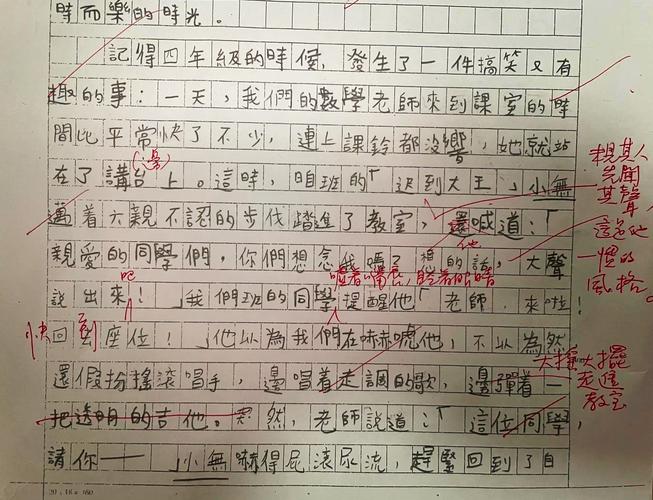 時而樂的時光。
記得四年級的時候，發生了一件搞笑又有
趣的事：一天，我們的數學老師來到課室的時
間比平常快了不少，連上課鈴都沒響，她就站
(邊)
在了講台上。這時，咱班的「遲到大王」小無
邁着六親不認的步伐踏進了教室，還喊道：「
他
親愛的同學們，你們想念我嗎？想的話，大聲
吧
說出來！」我們班的同學提醒他「老師來啦！
快回到座位！」他以為我們在嚇唬他，不以為然
還假扮搖滾唱手，邊唱着走調的歌，邊彈着一
把透明的吉他。忽然，老師說道：「這位同學，
請你——」小無嚇得屁滾尿流，趕緊回到了自
其人
先聞
其聲，
這是他
一慣的
風格。
大搖大擺
走進
教室